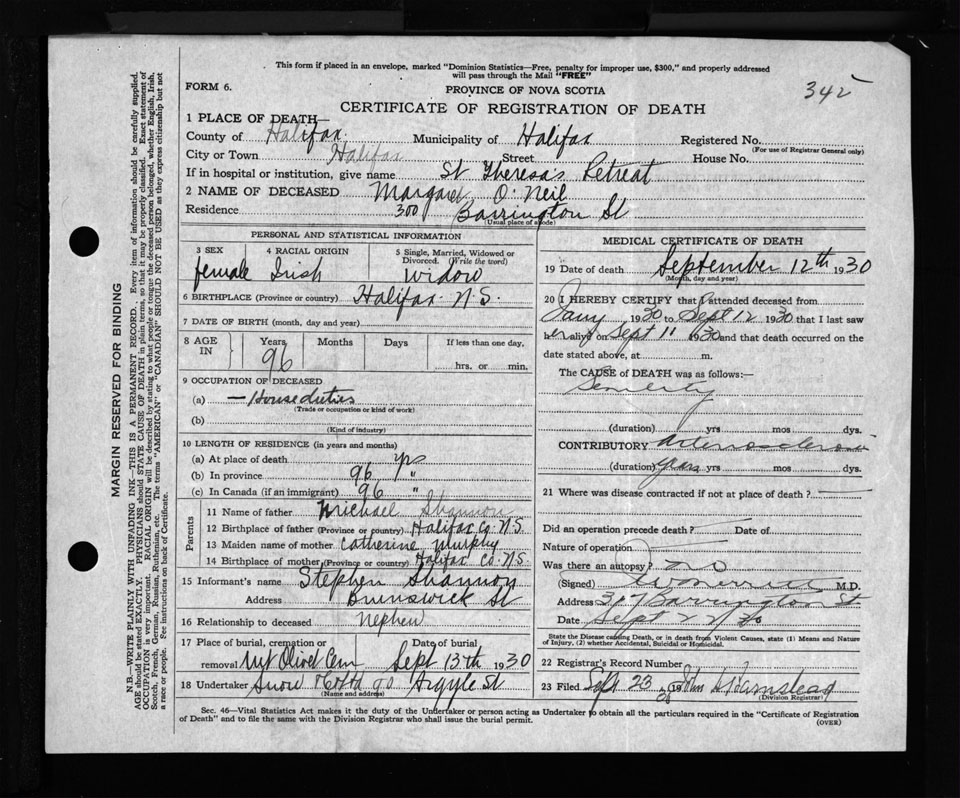 This form if placed in an envelope, marked "Dominion Statistics—Free, penalty for improper use, $300," and properly addressed
will pass through the Mail "FREE"
FORM 6.
PROVINCE OF NOVA SCOTIA
342
CERTIFICATE OF REGISTRATION OF DEATH
1 PLACE OF DEATH—
County of Halifax Municipality of Halifax Registered No.
(For use of Registrar General only)
City or Town Halifax Street House No.
If in hospital or institution, give name St Theresa's Retreat
2 NAME OF DECEASED Margaret O'Neil
Residence 300 Barrington St
(Usual place of abode)
PERSONAL AND STATISTICAL INFORMATION
3 SEX 4 RACIAL ORIGIN 5 Single, Married, Widowed or Divorced. (Write the word)
female Irish Widow
6 BIRTHPLACE (Province or country) Halifax N.S.
7 DATE OF BIRTH (month, day and year)
8 AGE IN Years Months Days If less than one day,
96 hrs. or min.
9 OCCUPATION OF DECEASED
(a) — House duties
(Trade or occupation or kind of work)
(b)
(Kind of industry)
10 LENGTH OF RESIDENCE (in years and months)
(a) At place of death yrs
(b) In province 96 "
(c) In Canada (if an immigrant) 96 "
Parents
11 Name of father Michael Shannon
12 Birthplace of father (Province or country) Halifax Co. N.S.
13 Maiden name of mother Catherine Murphy
14 Birthplace of mother (Province or country) Halifax Co. N.S.
15 Informant's name Stephen Shannon
Address Brunswick St
16 Relationship to deceased nephew
17 Place of burial, cremation or removal Mt Olivet Cem Date of burial Sept 13th 1930
18 Undertaker Snow & Co Ltd 90 Argyle St
(Name and address)
MEDICAL CERTIFICATE OF DEATH
19 Date of death September 12th 1930
(Month, day and year)
20 I HEREBY CERTIFY that I attended deceased from
Jany 1930 to Sept 12 1930 that I last saw
her alive on Sept 11 1930 and that death occurred on the
date stated above, at m.
The CAUSE of DEATH was as follows:—
Senility
(duration) yrs mos dys.
CONTRIBUTORY Arteriosclerosis
(duration) years yrs mos dys.
21 Where was disease contracted if not at place of death?
Did an operation precede death? Date of
Nature of operation
Was there an autopsy? no
(Signed) M.D.
Address 317 Barrington St
Date Sept 22/30
State the Disease causing Death, or in death from Violent Causes, state (1) Means and Nature
of Injury, (2) whether Accidental, Suicidal or Homicidal.
22 Registrar's Record Number
23 Filed Sept 23 1930 John
(Division Registrar)
Sec. 46—Vital Statistics Act makes it the duty of the Undertaker or person acting as Undertaker to obtain all the particulars required in the "Certificate of Registration
of Death" and to file the same with the Division Registrar who shall issue the burial permit.
(OVER)
MARGIN RESERVED FOR BINDING
N.B.—WRITE PLAINLY WITH UNFADING INK—THIS IS A PERMANENT RECORD. Every item of information should be carefully supplied.
AGE should be stated EXACTLY. PHYSICIANS should STATE CAUSE OF DEATH in plain terms, so that it may be properly classified. Exact statement of
OCCUPATION is very important. RACIAL ORIGIN will be described by stating to what people or tongue the deceased person belonged, whether English, Irish,
Scotch, French, German, Russian, Ruthenian, etc. The terms "AMERICAN" or "CANADIAN" SHOULD NOT BE USED as they express citizenship but not
a race or people. Fee instructions on back of Certificate.